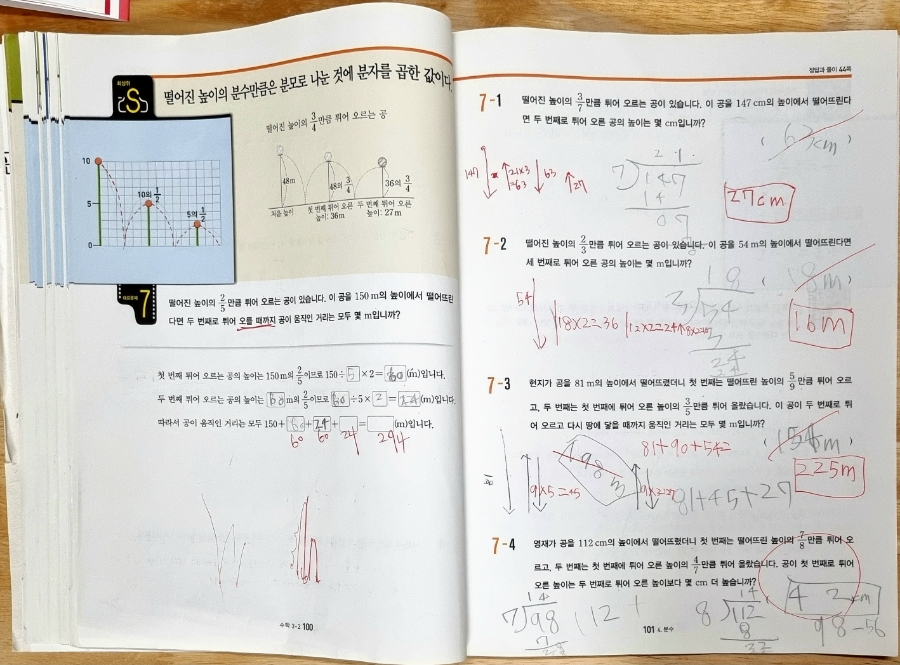 최상위
S
떨어진 높이의 분수만큼은 분모로 나눈 것에 분자를 곱한 값이다.
10
5
0
10의 1/2
5의 1/2
떨어진 높이의 3/4만큼 튀어 오르는 공
48m
48의 3/4
36의 3/4
처음 높이
첫 번째 튀어 오른
높이: 36m
두 번째 튀어 오른
높이: 27 m
대표문제
7
떨어진 높이의 2/5만큼 튀어 오르는 공이 있습니다. 이 공을 150 m의 높이에서 떨어뜨린
다면 두 번째로 튀어 오를 때까지 공이 움직인 거리는 모두 몇 m입니까?
첫 번째 튀어 오르는 공의 높이는 150 m의 2/5이므로 150÷5×2=60(m)입니다.
두 번째 튀어 오르는 공의 높이는 60 m의 2/5이므로 60÷5×2=24(m)입니다.
따라서 공이 움직인 거리는 모두 150+60+24+ = (m)입니다.
60 60 24 294
수학 3-2 100
정답과 풀이 44쪽
7-1 떨어진 높이의 3/7만큼 튀어 오르는 공이 있습니다. 이 공을 147 cm의 높이에서 떨어뜨린다
면 두 번째로 튀어 오른 공의 높이는 몇 cm입니까?
( 63cm )
147
21×3
=63
63
27
21
7 147
14
07
27cm
7-2 떨어진 높이의 2/3만큼 튀어 오르는 공이 있습니다. 이 공을 54 m의 높이에서 떨어뜨린다면
세 번째로 튀어 오른 공의 높이는 몇 m입니까?
( 18m )
54
18×2=36
12×2=24
18
3 54
3
24
24
16m
7-3 현지가 공을 81 m의 높이에서 떨어뜨렸더니 첫 번째는 떨어진 높이의 5/9만큼 튀어 오르
고, 두 번째는 첫 번째에 튀어 오른 높이의 3/5만큼 튀어 올랐습니다. 이 공이 두 번째로 튀
어 오르고 다시 땅에 닿을 때까지 움직인 거리는 모두 몇 m입니까?
81+90+54=
( 154m )
225m
81
9×5=45
198m
81+45+27
7-4 영재가 공을 112 cm의 높이에서 떨어뜨렸더니 첫 번째는 떨어진 높이의 7/8만큼 튀어 오
르고, 두 번째는 첫 번째에 튀어 오른 높이의 4/7만큼 튀어 올랐습니다. 공이 첫 번째로 튀어
오른 높이는 두 번째로 튀어 오른 높이보다 몇 cm 더 높습니까?
42cm
14
7 98
112
14
8 112
8
32
98-56
101 4. 분수